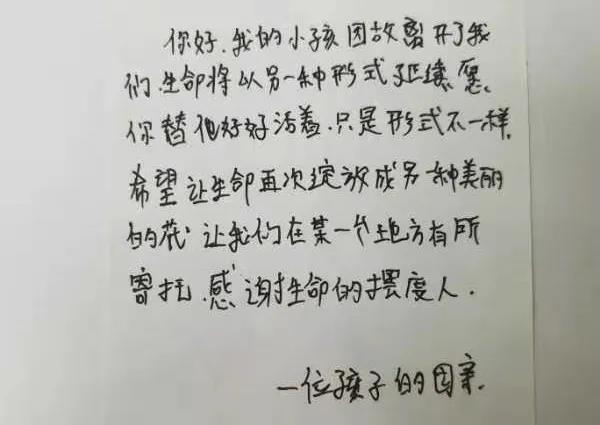 你好.我的小孩因故离开了我
们.生命将以另一种形式延续.愿
你替他好好活着.只是形式不一样.
希望让生命再次绽放成另一种美丽
的花.让我们在某一个地方有所
寄托.感谢生命的摆度人.
一位孩子的母亲.